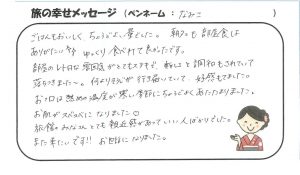 旅の幸せメッセージ（ペンネーム：なみこ）
ごはんもおいしく、ちょうどよい量でした。朝夕も部屋食は
ありがたい ゆっくり食べれて良かったです。
部屋のレトロな雰囲気がとてもステキで、軽いと調和もされていて
落ちつきました～。何よりそうじが行き届いていて、好感もてました。
お風呂は熱めの温度が寒い季節にちょうどよくあたたまりました。
お肌がスベスベになりました♡
旅館のみなさんとても親近感があっていい人ばかりでした。
また来たいです!! お世話になりました。